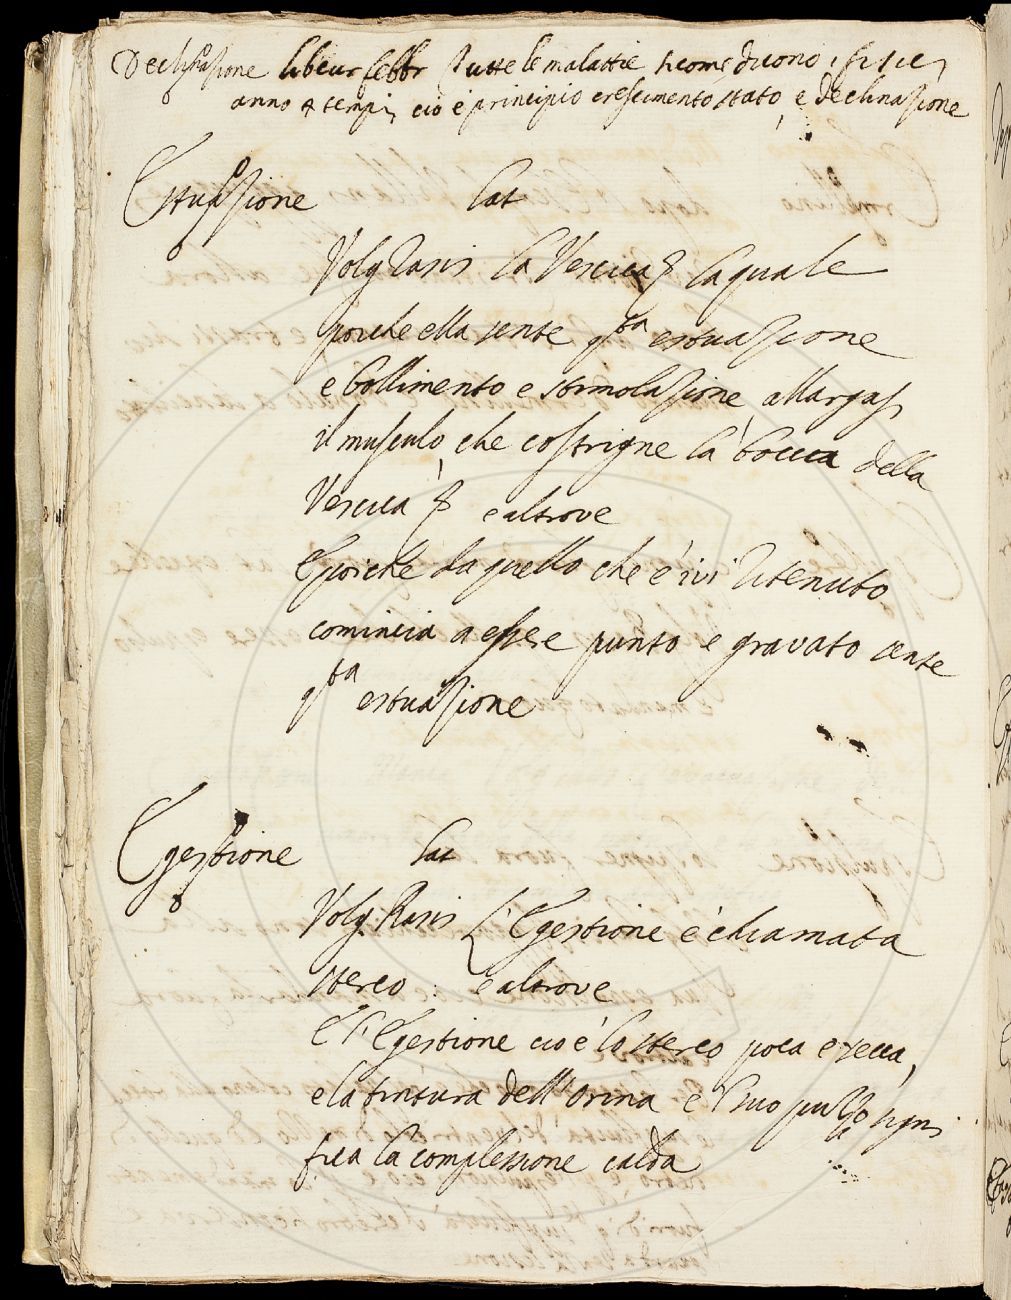 Declinazione lib cur febbr Tutte le malattie sicome dicono i fisici
anno 4 tempi, cio è principio crescimento stato, e declinazione
Estuazione lat
Volg Rasis la Vescica laquale
poiche ella sente qta estuazione
e bollimento e stimolazione, allargasi
il musculo, che costrigne la bocca della
Vescica e altrove
E poiche da quello che è ivi ritenuto
comincia a essere punto e gravato sente
qta estuazione
Egestione lat
Volg. Rasis L'Egestione è chiamata
stereo : e altrove
E l'Egestione cio è lo stereo poca e secca,
e la tintura dell'orina e'l suo puzzo signi
fica la complessione calda